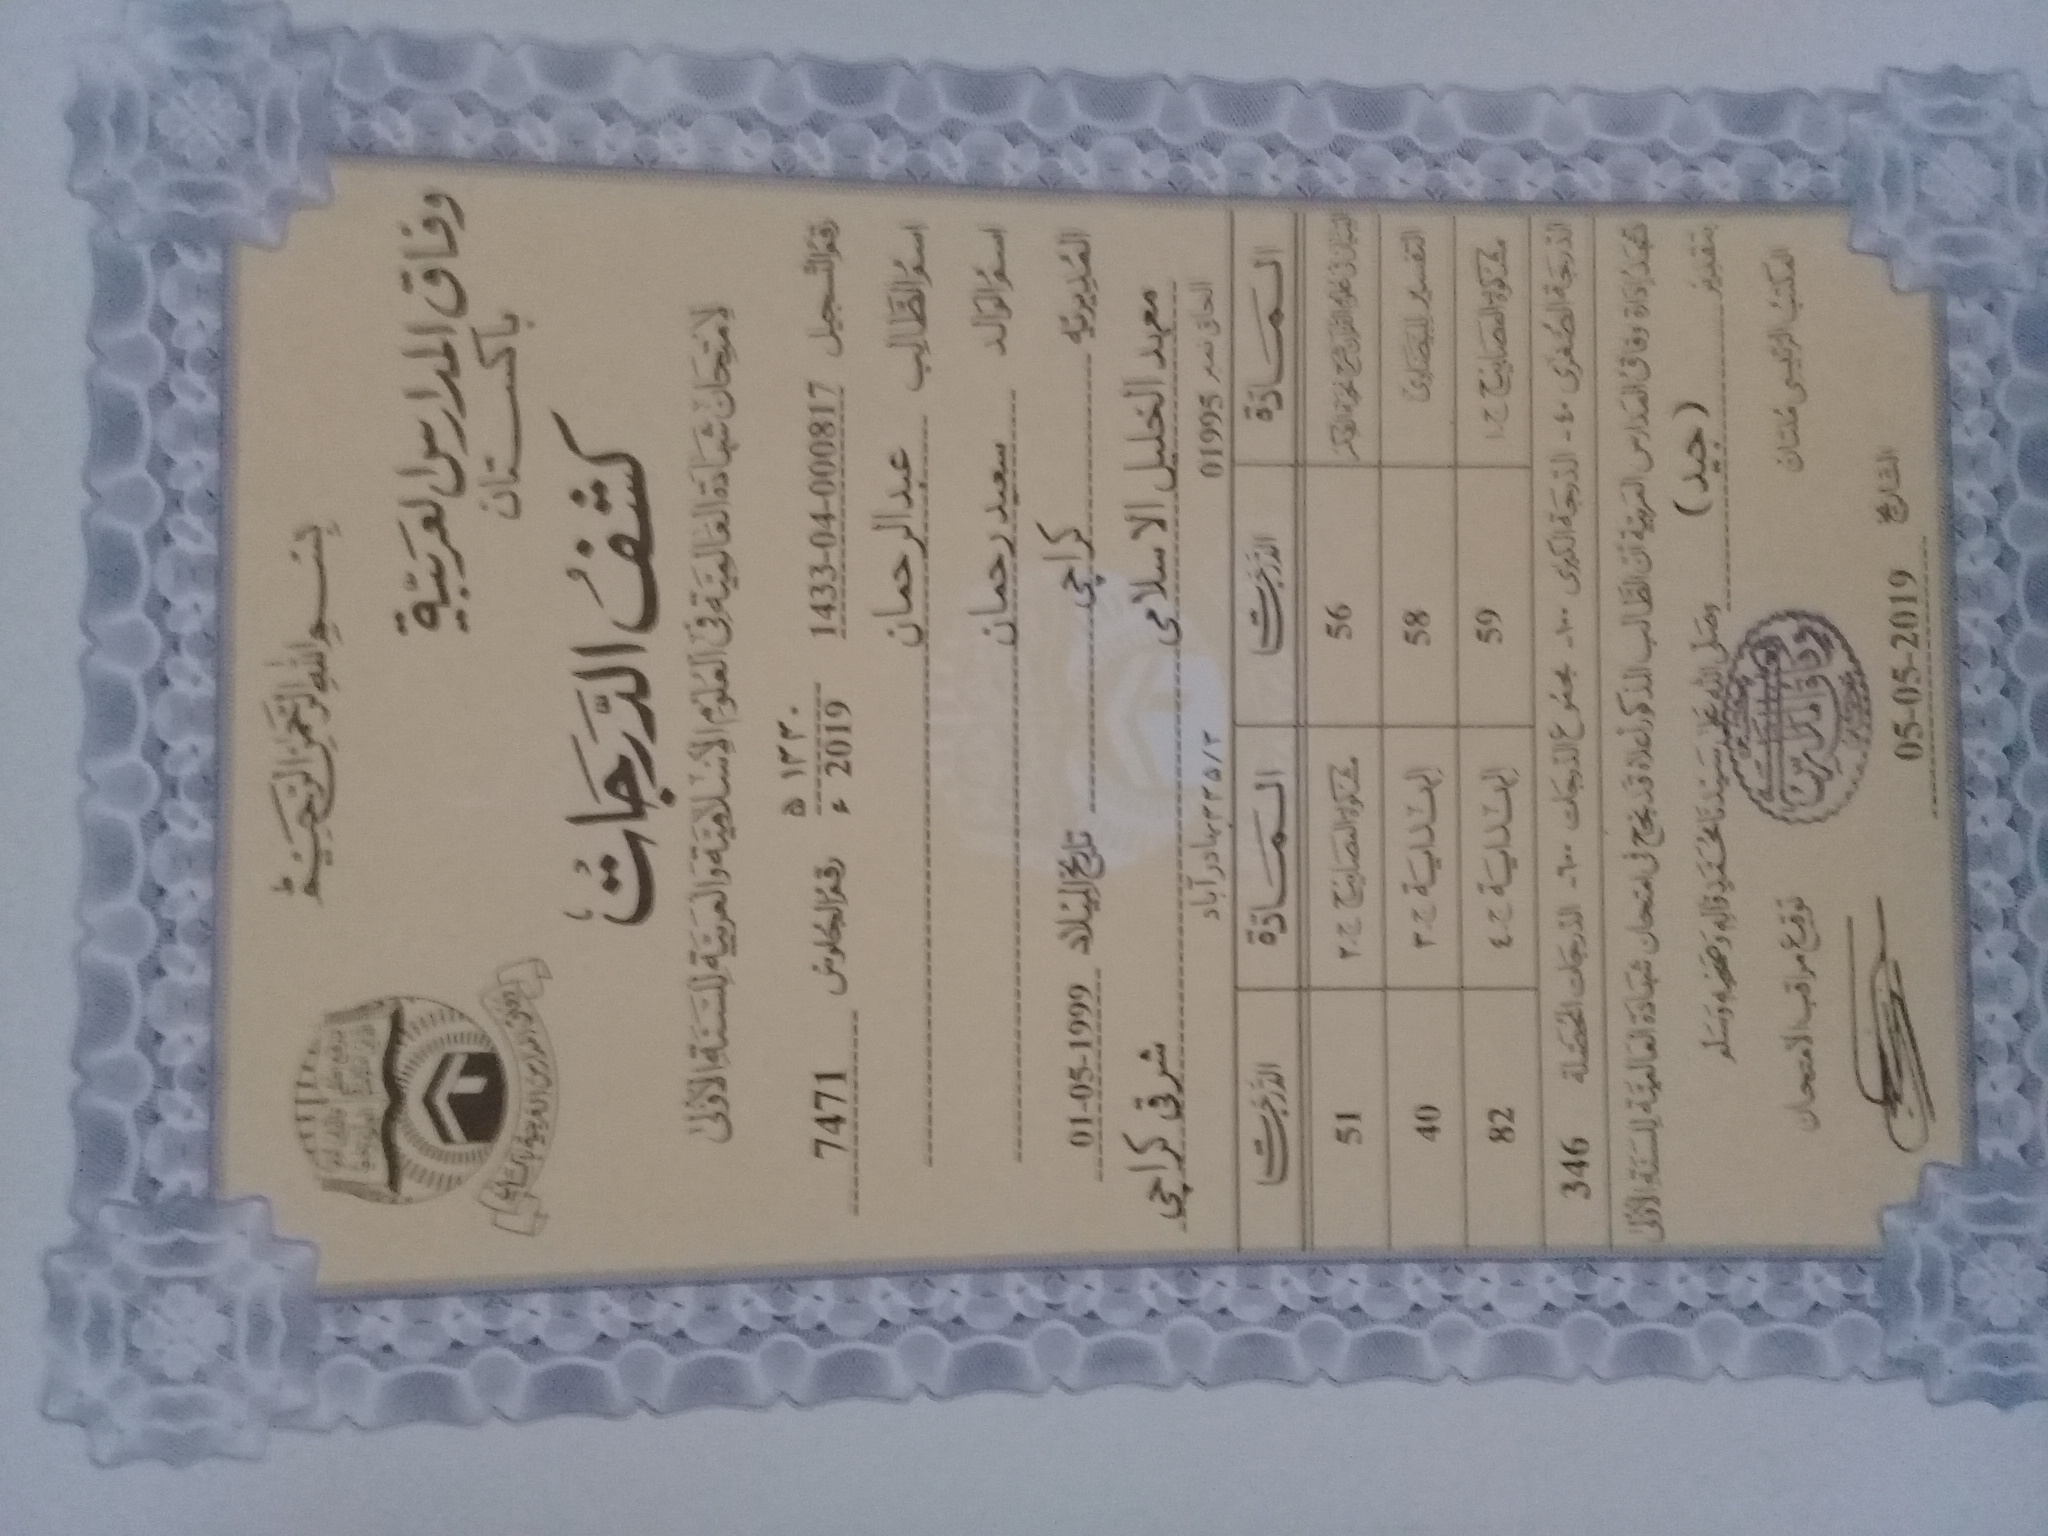 بسم الله الرحمن الرحيم
وفاق المدارس العربية
باكستان
كشف الدرجات
لامتحان شهادة العالمية في العلوم الإسلامية والعربية للسنة الأولى
رقم التسجيل 1433-04-000817 ١٣٣٠ ه
2019 ء رقم الجلوس 7471
اسم الطالب عبدالرحمان
اسم الوالد سعيد رحمان
المديرية كراچی تاريخ الميلاد 01-05-1999
معهد الخليل الاسلامی شرقی کراچی
الحاق نمبر 01995 بهادرآباد
المادة الدرجات المادة الدرجات
56 مشكوة المصابيح ج٢ 51
التفسير للبيضاوي 58 الهداية ج٣ 40
مشكوة المصابيح ج١ 59 الهداية ج٤ 82
الدرجة الصغرى ٤٠- الدرجة الكبرى ١٠٠- مجموع الدرجات ٦٠٠- الدرجات المحصلة 346
وفاق المدارس العربية أن الطالب المذكور أعلاه قد نجح في امتحان شهادة العالمية للسنة الأولى
بتقدير (جيد) وصلى الله على سيدنا محمد وآله وصحبه وسلم
المكتب الرئيسي ملتان توقيع مراقب الامتحان
التاريخ 05-05-2019